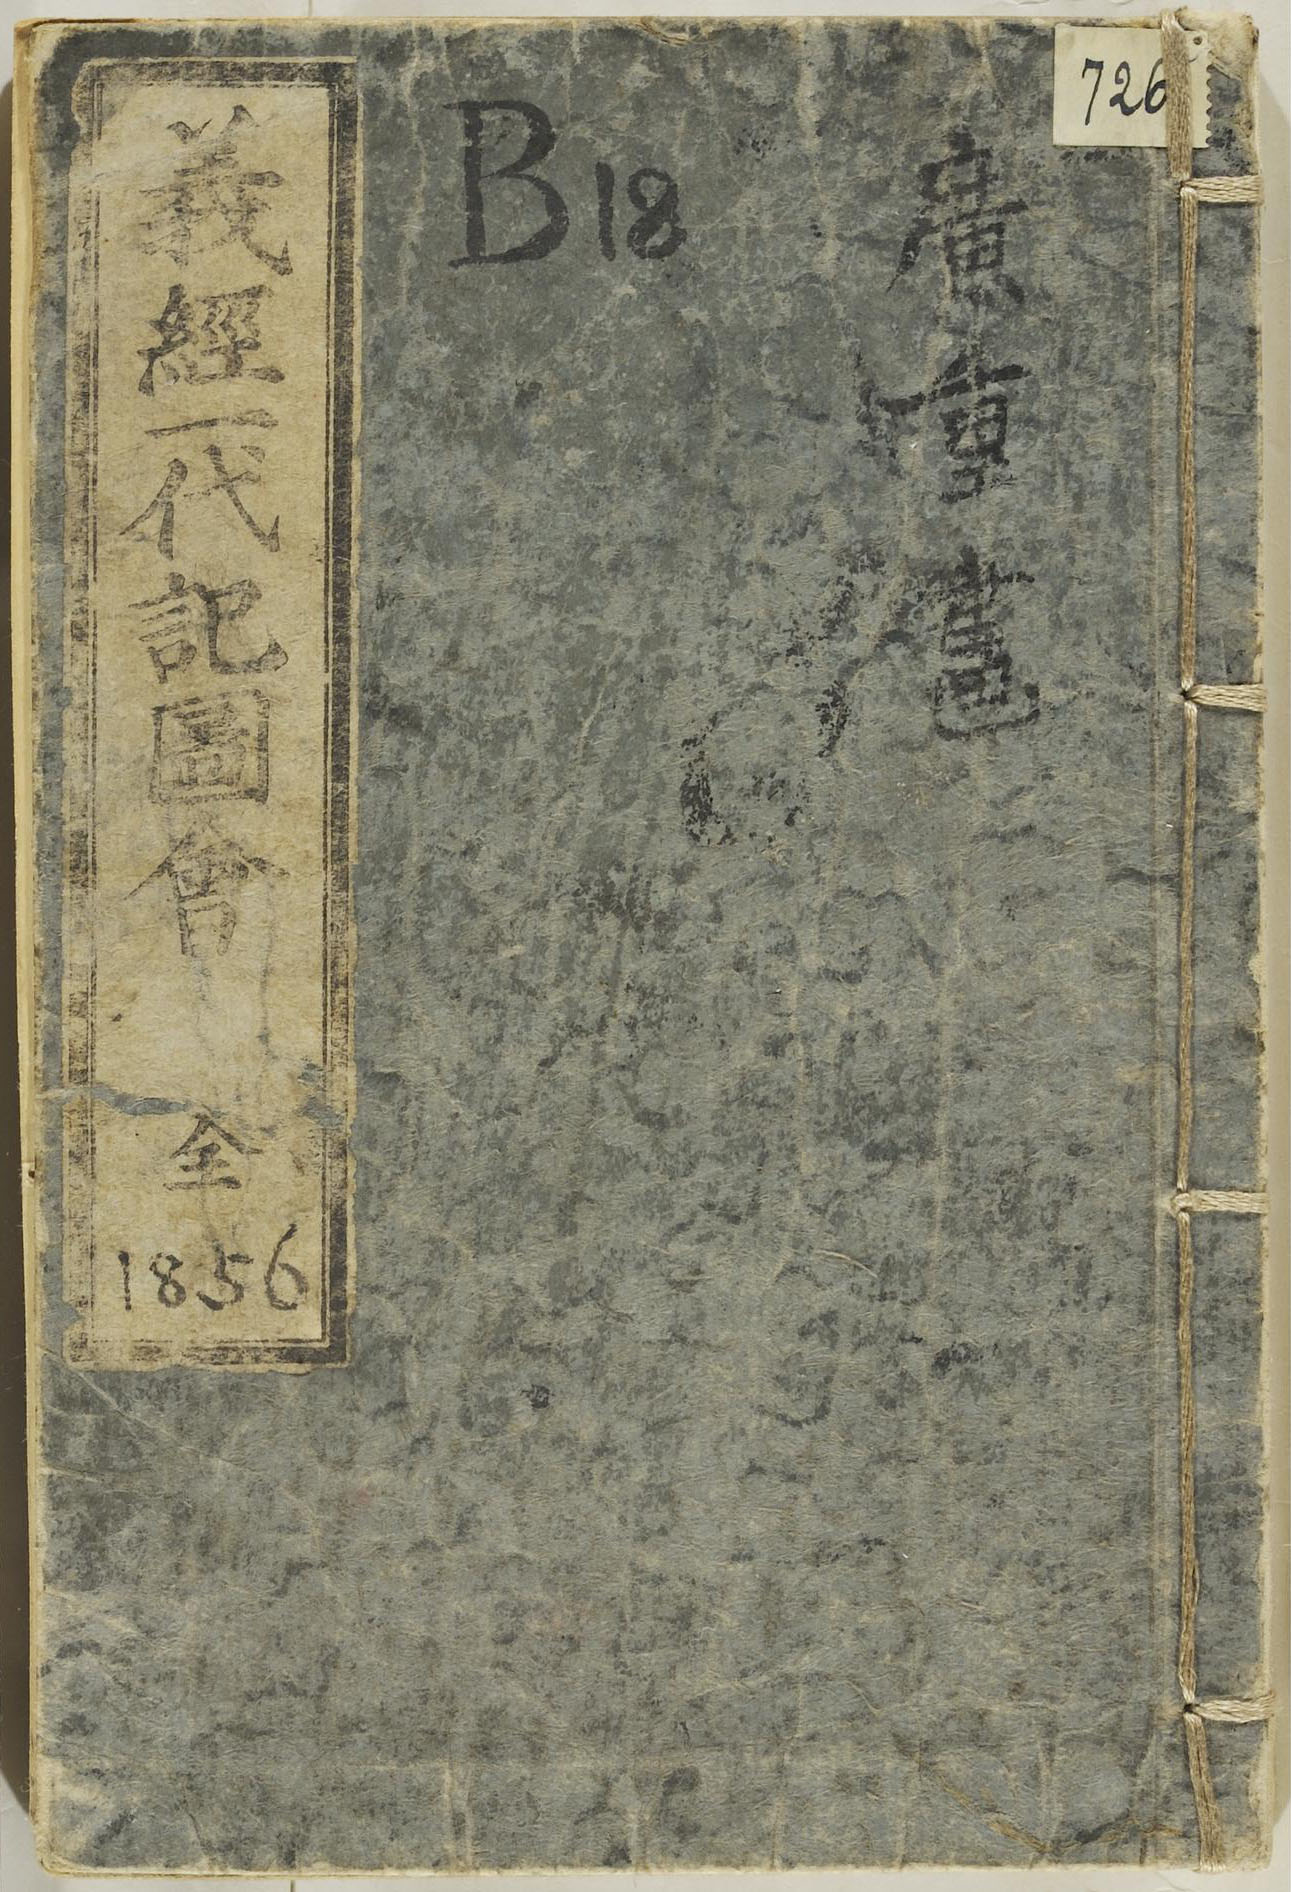 726
廣重畫
B18
義經一代記圖會
全
1856